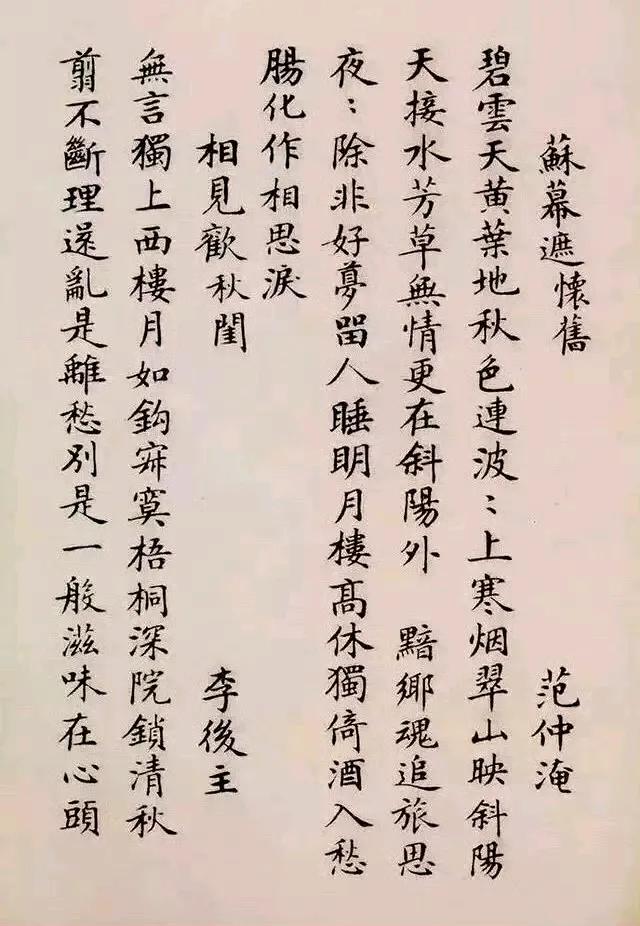 蘇幕遮懷舊 范仲淹
碧雲天黄葉地秋色連波〻上寒烟翠山映斜陽
天接水芳草無情更在斜陽外 黯鄉魂追旅思
夜〻除非好夢留人睡明月樓高休獨倚酒入愁
腸化作相思淚
相見歡秋閨 李後主
無言獨上西樓月如鈎寂寞梧桐深院鎖清秋
翦不斷理還亂是離愁別是一般滋味在心頭